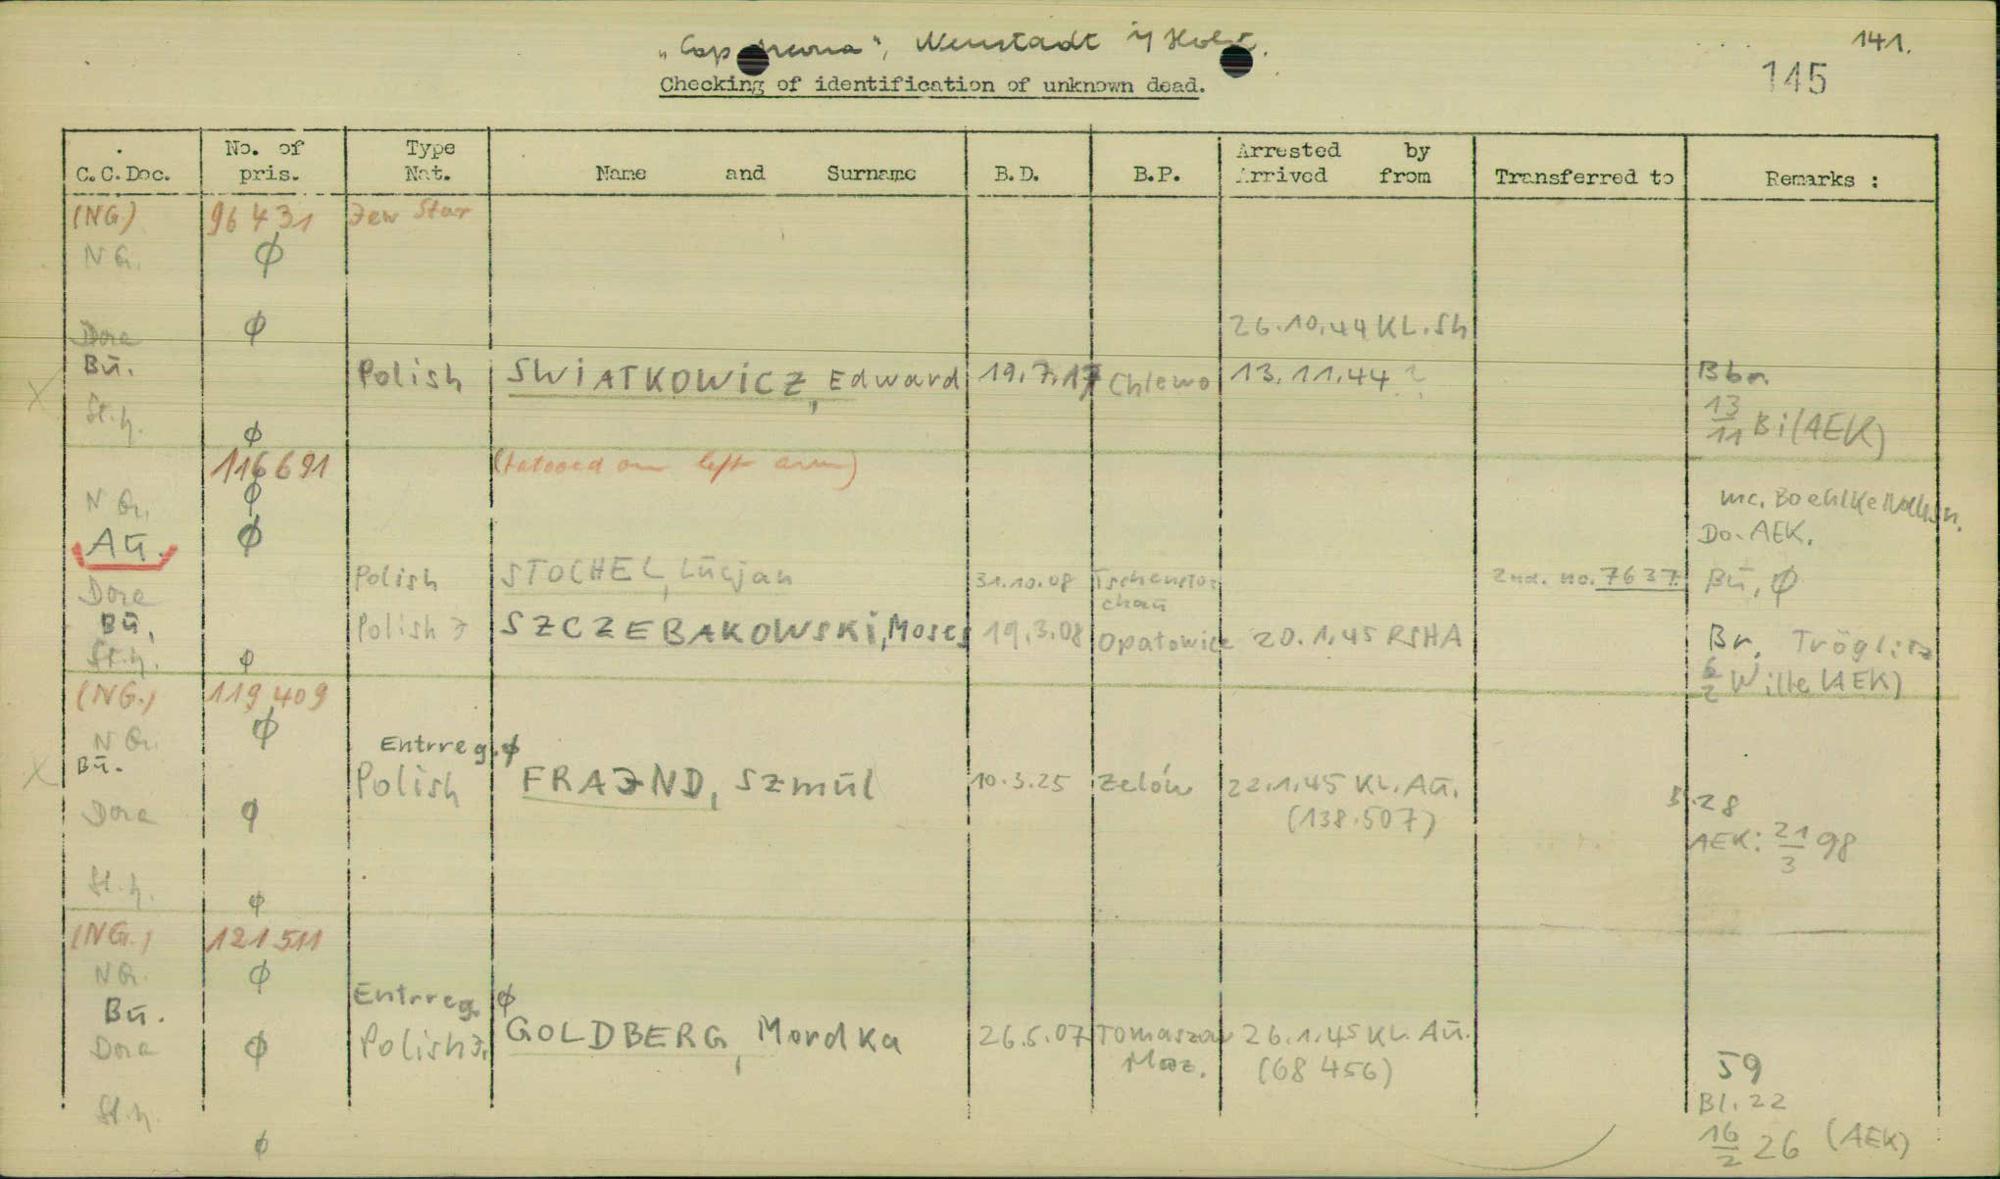 "Cap Arcona", Neustadt i/ Holst.
141.
145
Checking of identification of unknown dead.
C.C.Doc. No. of pris. Type Nat. Name and Surname B.D. B.P. Arrested by Arrived from Transferred to Remarks :
(NG.) 96431 Jew Star
N G. ϕ
Dora ϕ 26.10.44 KL.Sh
Bū. Polish SWIATKOWICZ, Edward 19.7.17 Chlewo 13.11.44 ? Bbn
St.h. ϕ 13/11 Bi (AEK)
116691 (tatooed on left arm)
N G. ϕ mc. Boehlke
AŪ. ϕ Do. AEK.
Polish STOCHEL, Lūcjan 31.10.08 Tschenstochaū 2nd. no. 7637 Bū, ϕ
Dora
Bū. Polish J SZCZEBAKOWSKI, Moses 19.3.08 Opatowice 20.1.45 RSHA Br. Tröglitz
St.h. ϕ 6/2 Wille (AEK)
(NG.) 119409
N G. ϕ Entrreg. ϕ
Bū. Polish FRAJND, Szmūl 10.3.25 Zelów 22.1.45 KL. AŪ. 28
Dora ϕ (138.507) AEK: 21/3 98
St.h. ϕ
(NG.) 121511
N G. ϕ Entrreg. ϕ
Bū.
Dora ϕ Polish J. GOLDBERG, Mordka 26.5.07 Tomaszow Maz. 26.1.45 KL. AŪ. (68 456) 59
St.h. Bl. 22
ϕ 16/2 26 (AEK)